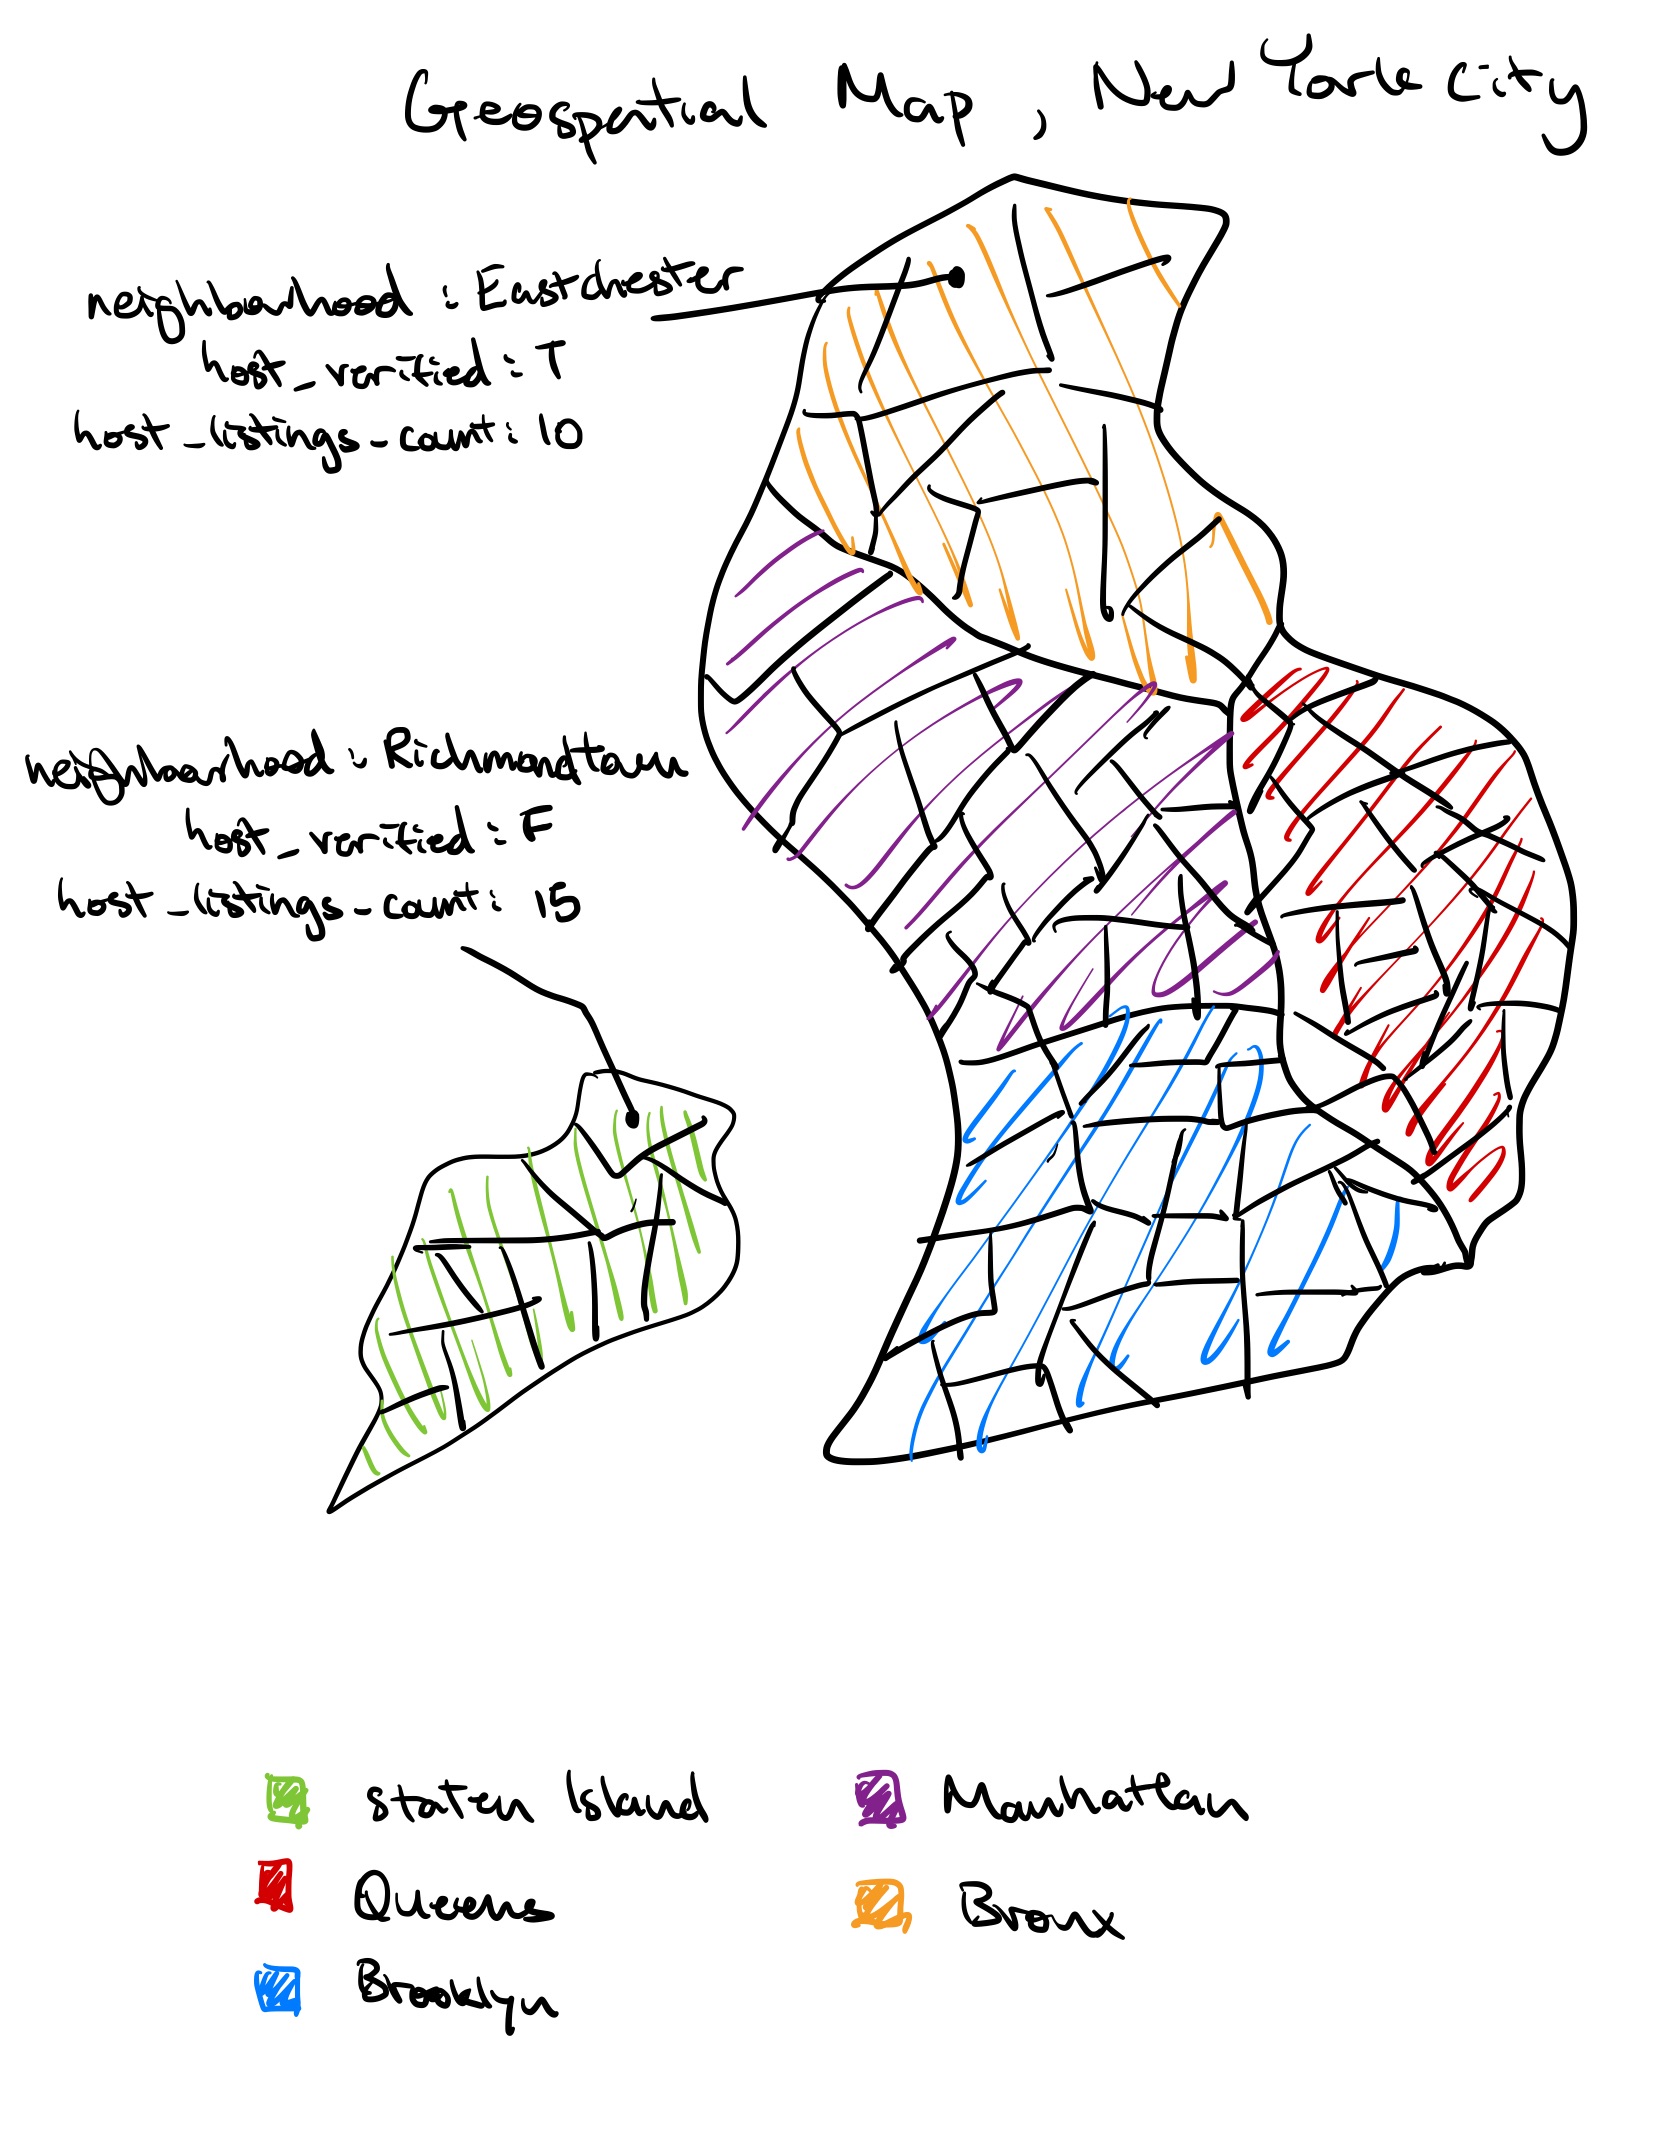 Geospatial Map, New York City
neighbourhood : Eastchester
host_verified : T
host_listings_count : 10
neighbourhood : Richmondtown
host_verified : F
host_listings_count : 15
Staten Island
Manhattan
Queens
Bronx
Brooklyn